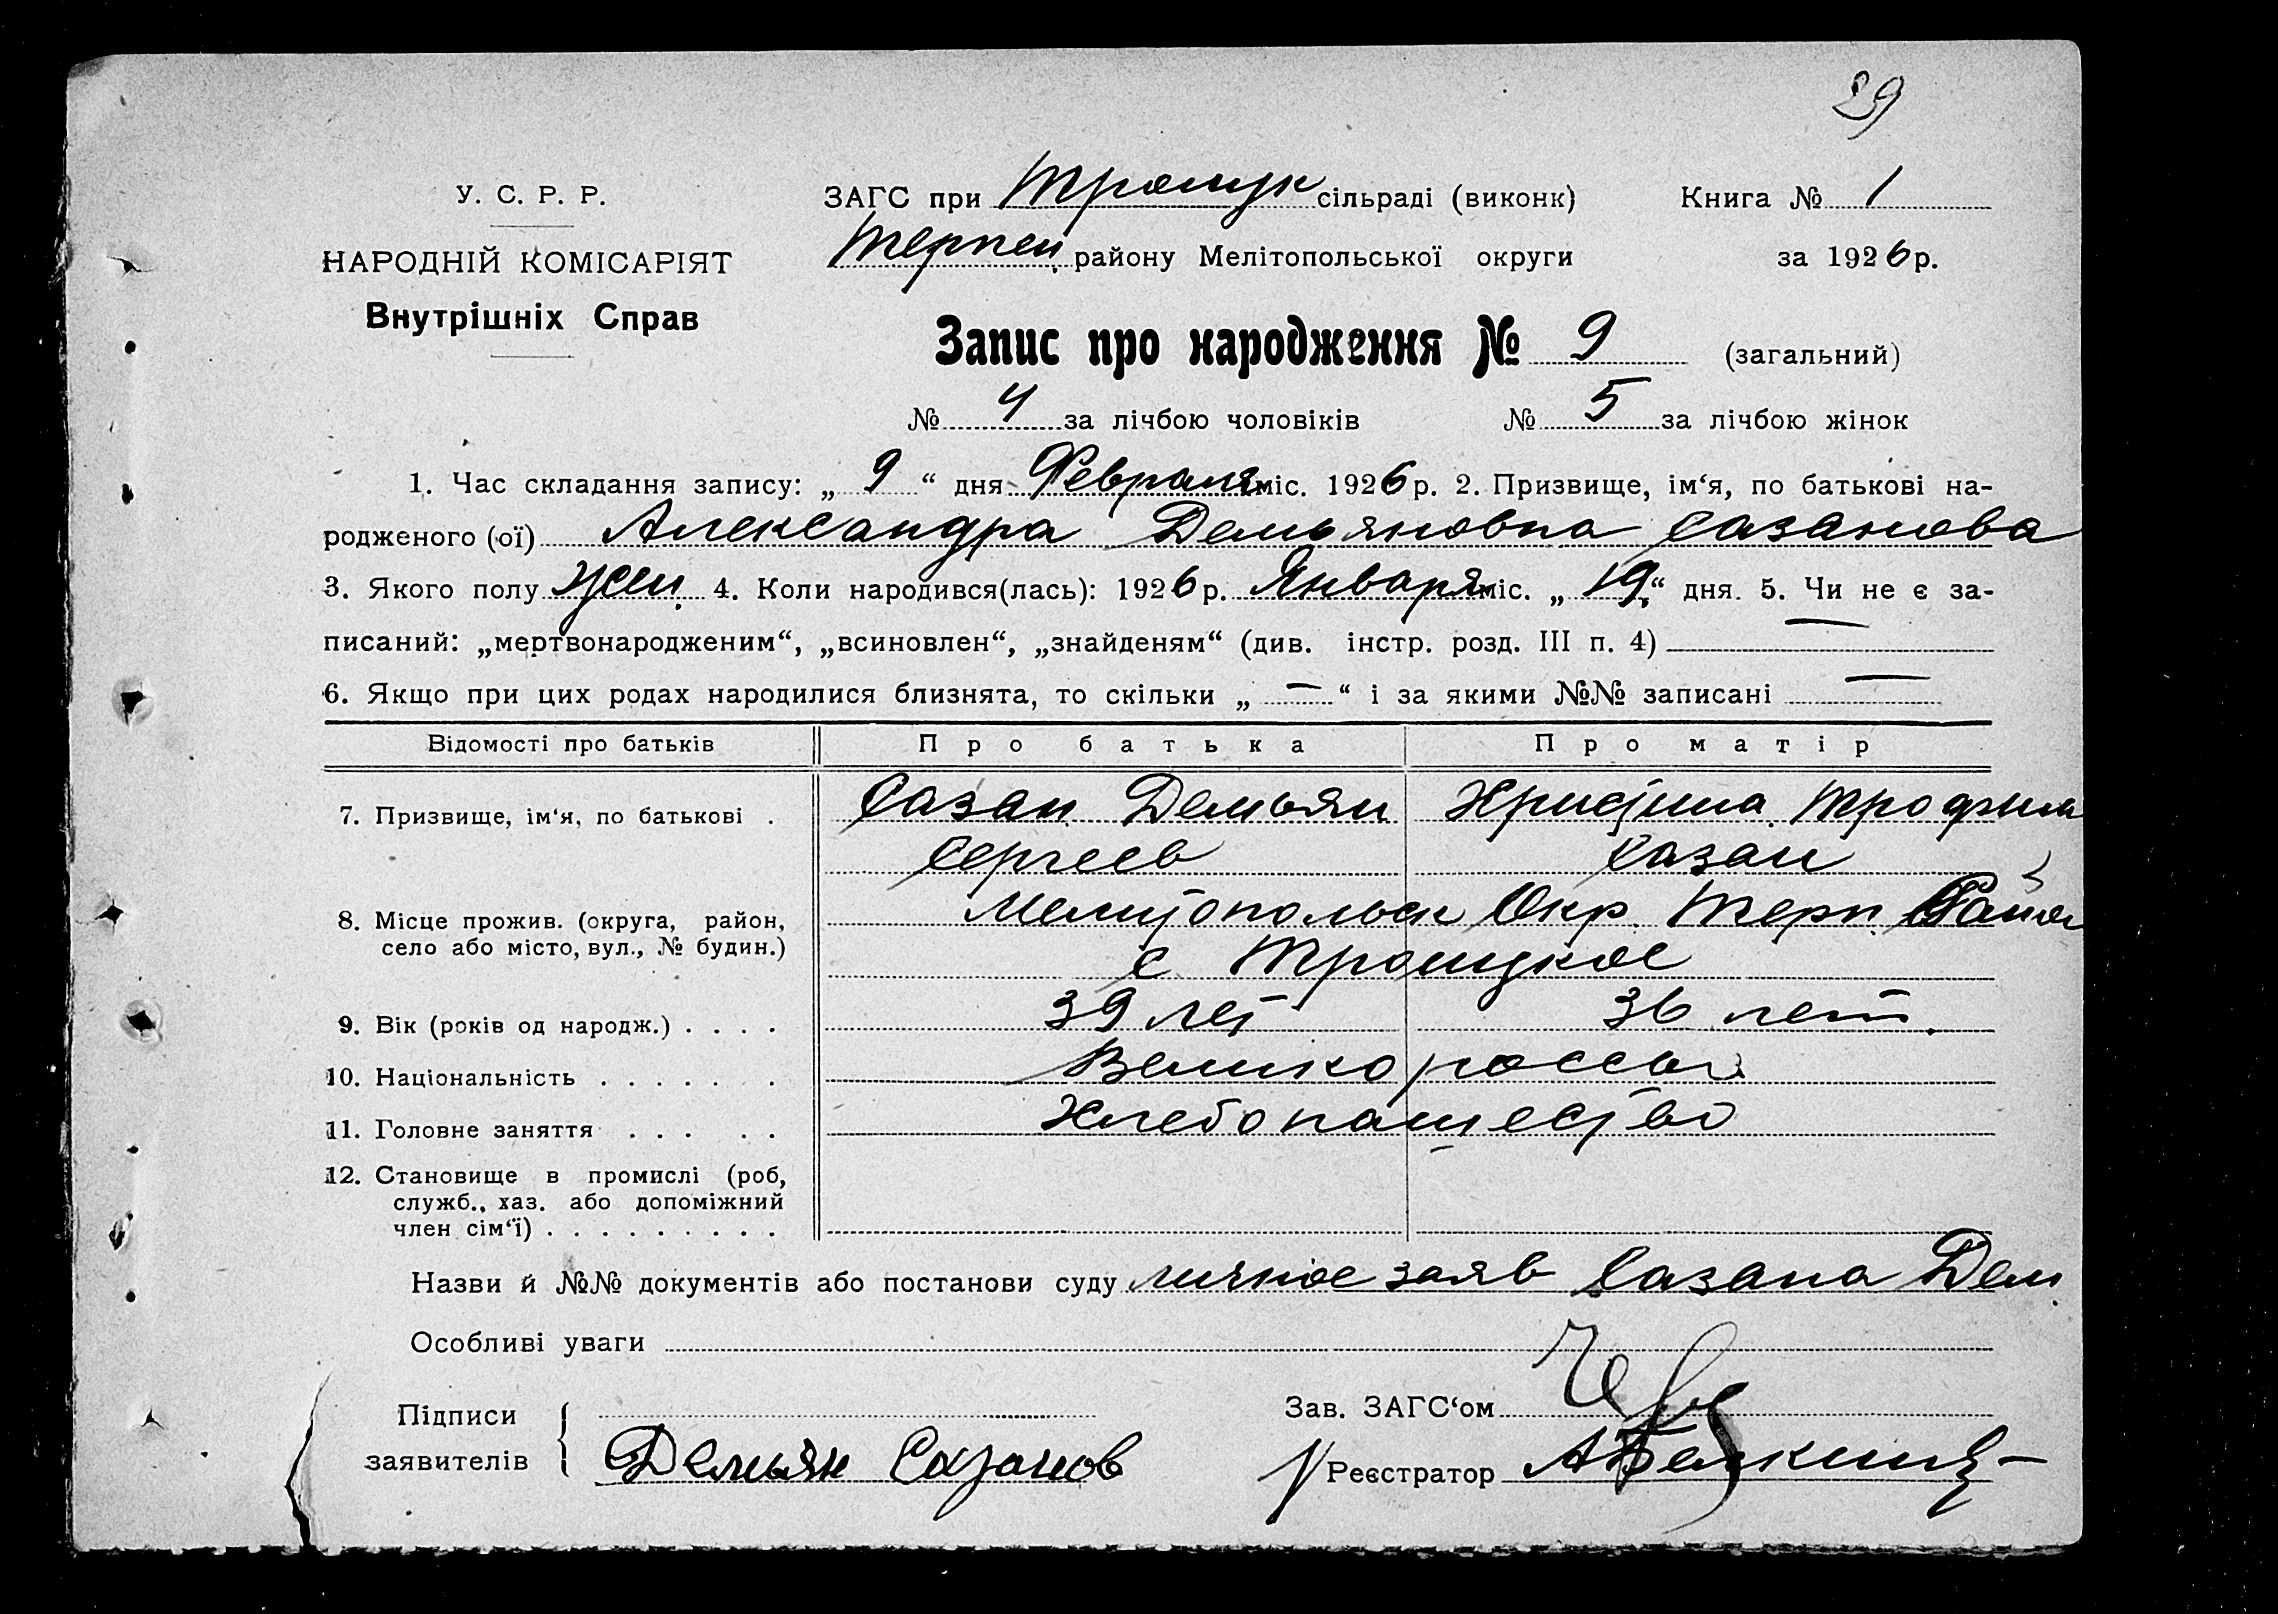 29
У. С. Р. Р.
ЗАГС при Троицк сільраді (виконк) Книга № 1
НАРОДНІЙ КОМІСАРІЯТ
Терпен. району Мелітопольської округи за 1926 р.
Внутрішніх Справ
Запис про народження № 9 (загальний)
№ 4 за лічбою чоловіків № 5 за лічбою жінок
1. Час складання запису: „ 9 “ дня Февраля міс. 1926 р. 2. Призвище, ім‘я, по батькові на-
родженого (ої) Александра Демьяновна Сазанова
3. Якого полу жен. 4. Коли народився(лась): 1926 р. Января міс. „ 19 “ дня. 5. Чи не є за-
писаний: „мертвонародженим“, „всиновлен“, „знайденям“ (див. інстр. розд. III п. 4) —
6. Якщо при цих родах народилися близнята, то скільки „ — “ і за якими №№ записані —
Відомості про батьків Про батька Про матір
7. Призвище, ім‘я, по батькові . Сазан Демьян Христина Трофим
Сергеев Сазан
8. Місце прожив. (округа, район, Мелитопольск Окр. Терп. Район
село або місто, вул., № будин.) с Троицкое
9. Вік (років од народж.) . . . . 39 лет 36 лет.
10. Національність . . . . . . Великороссы
11. Головне заняття . . . . . Хлебопашество
12. Становище в промислі (роб,
служб., хаз. або допоміжний
член сім‘ї) . . . . . . . . .
Назви й №№ документів або постанови суду личное заяв Сазана Дем.
Особливі уваги
Підписи
заявителів
Зав. ЗАГС‘ом
Демьян Сазанов
Реєстратор